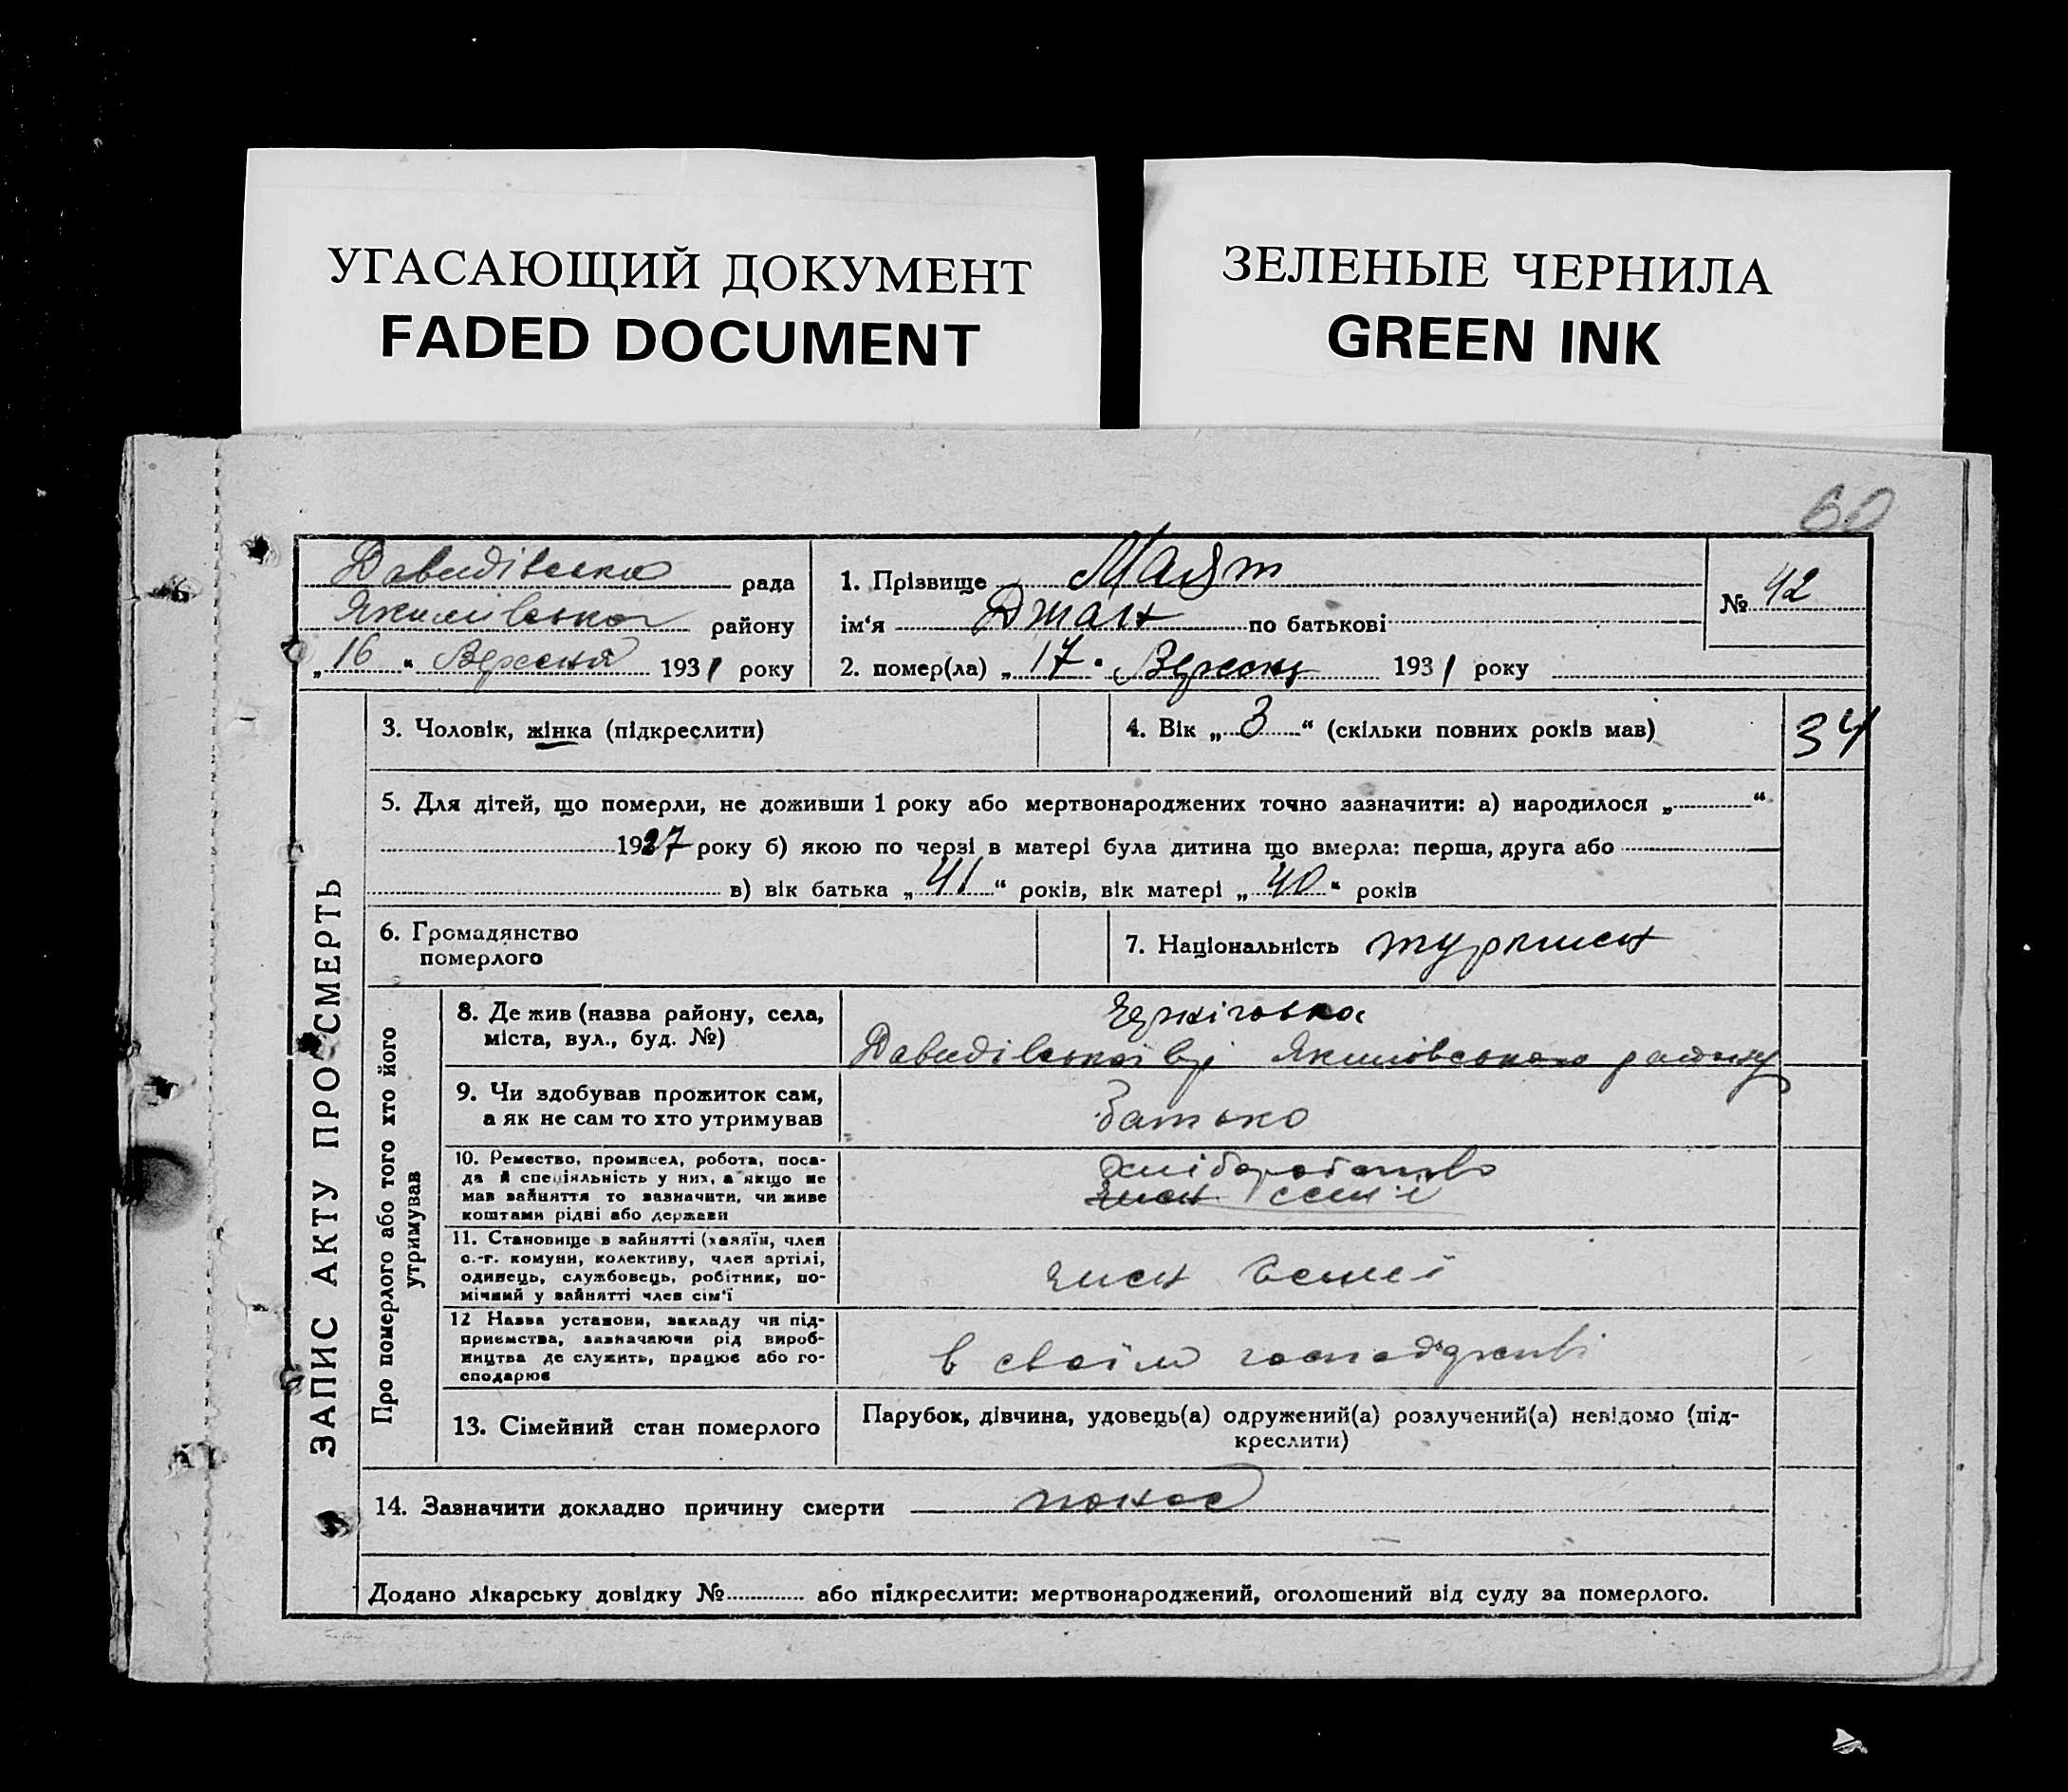 УГАСАЮЩИЙ ДОКУМЕНТ
FADED DOCUMENT
ЗЕЛЕНЫЕ ЧЕРНИЛА
GREEN INK
60
Давидівська рада
Якимівського району
„ 16 “ Вересня 1931 року
1. Прізвище Маят
ім‘я Джан по батькові
2. помер(ла) „ 17 “ Вересня 1931 року
№ 42
ЗАПИС АКТУ ПРО СМЕРТЬ
3. Чоловік, жінка (підкреслити)
4. Вік „ 3 “ (скільки повних років мав)
34
5. Для дітей, що померли, не доживши 1 року або мертвонароджених точно зазначити: а) народилося „ “
1927 року б) якою по черзі в матері була дитина що вмерла: перша, друга або
в) вік батька „ 41 “ років, вік матері „ 40 “ років
6. Громадянство
померлого
7. Національність
Про померлого або того хто його
утримував
8. Де жив (назва району, села,
міста, вул., буд. №)
Давидівської Якимівського району
9. Чи здобував прожиток сам,
а як не сам то хто утримував
Батько
10. Ремество, промисел, робота, поса-
да й спеціяльність у них, а якщо не
мав зайняття то зазначити, чи живе
коштами рідні або держави
хліборобство
член сем'ї
11. Становище в зайнятті (хазяїн, член
с.-г. комуни, колективу, член артілі,
одинець, службовець, робітник, по-
мічний у зайнятті член сім‘ї
член семєї
12 Назва установи, закладу чи під-
приємства, зазначаючи рід вироб-
ництва де служить, працює або го-
сподарює
в своїм господарстві
13. Сімейний стан померлого
Парубок, дівчина, удовець(а) одружений(а) розлучений(а) невідомо (під-
креслити)
14. Зазначити докладно причину смерти понос
Додано лікарську довідку № або підкреслити: мертвонароджений, оголошений від суду за померлого.